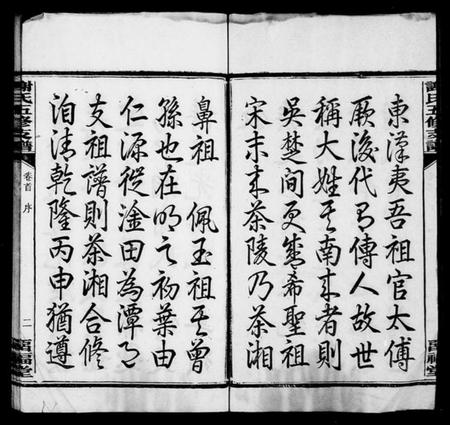 東漢夷吾祖官太傅
厥後代有傳人故世
稱大姓其南來者則
吳楚間更盛希聖祖
宋末來茶陵乃茶湘
鼻祖 佩玉祖其曾
孫也在明之初葉由
仁源從淦田為潭之
支祖譜則茶湘合修
洎清乾隆丙申猶遵
謝氏五修支譜
卷首 序
二